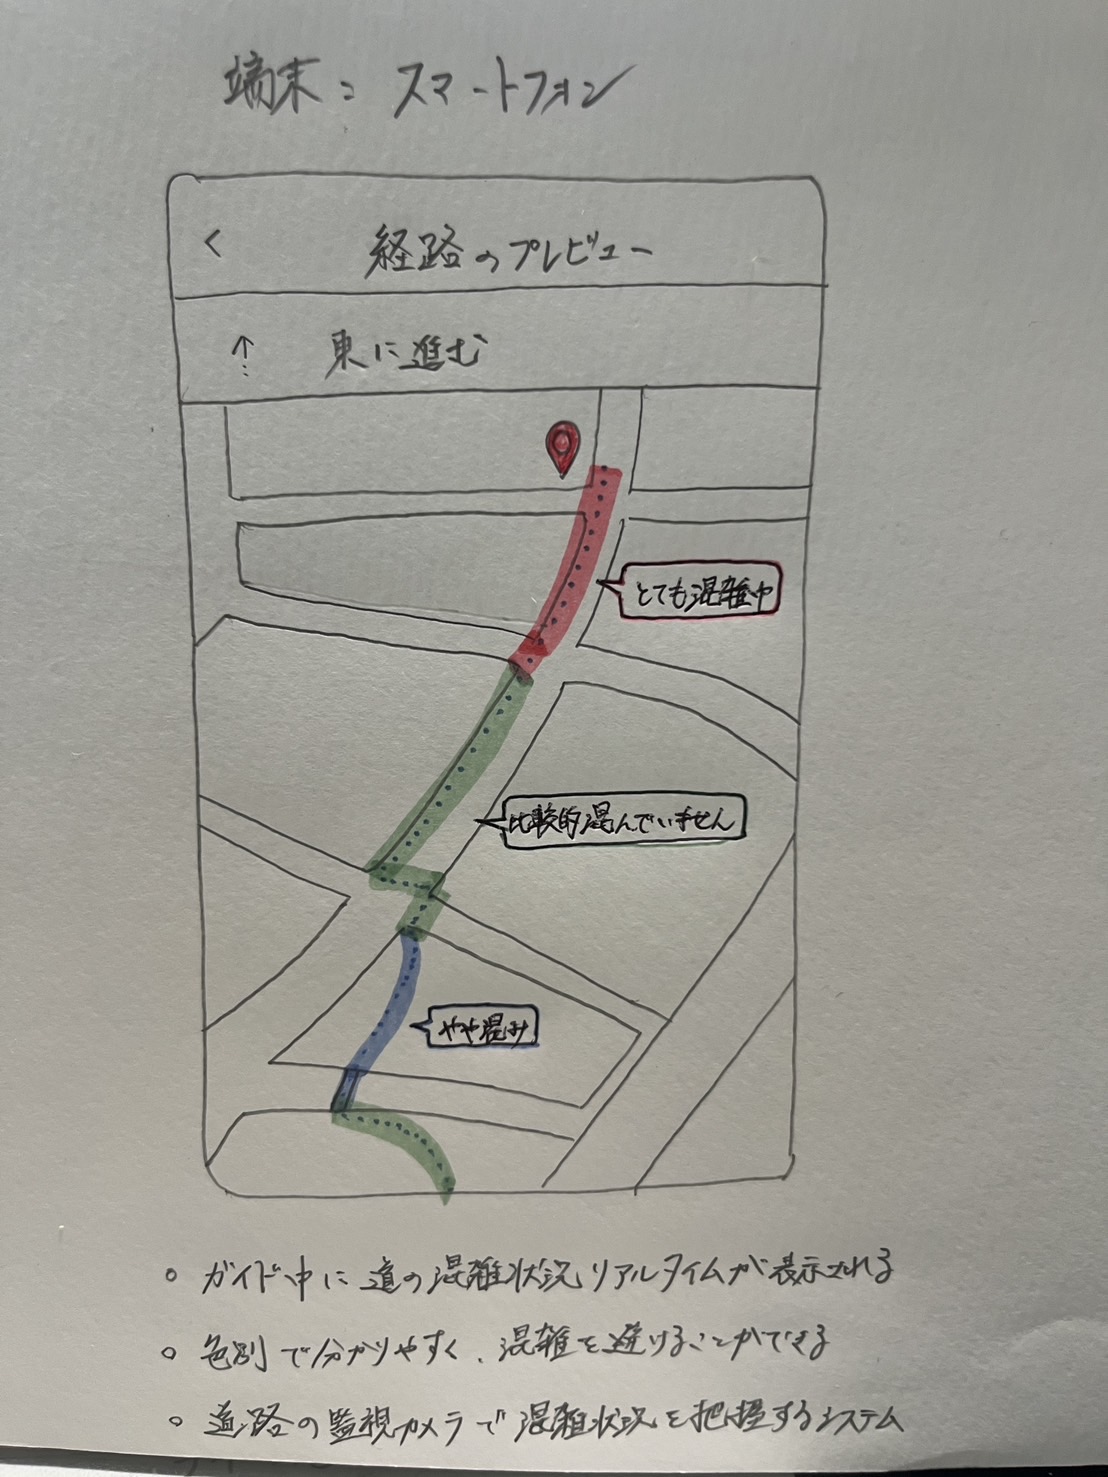 端末：スマートフォン
< 経路のプレビュー
↑ 東に進む
とても混雑中
比較的混んでいません
やや混み
○ ガイド中に道の混雑状況リアルタイムが表示される
○ 色別で分かりやすく、混雑を避けることができる
○ 道路の監視カメラで混雑状況を把握するシステム